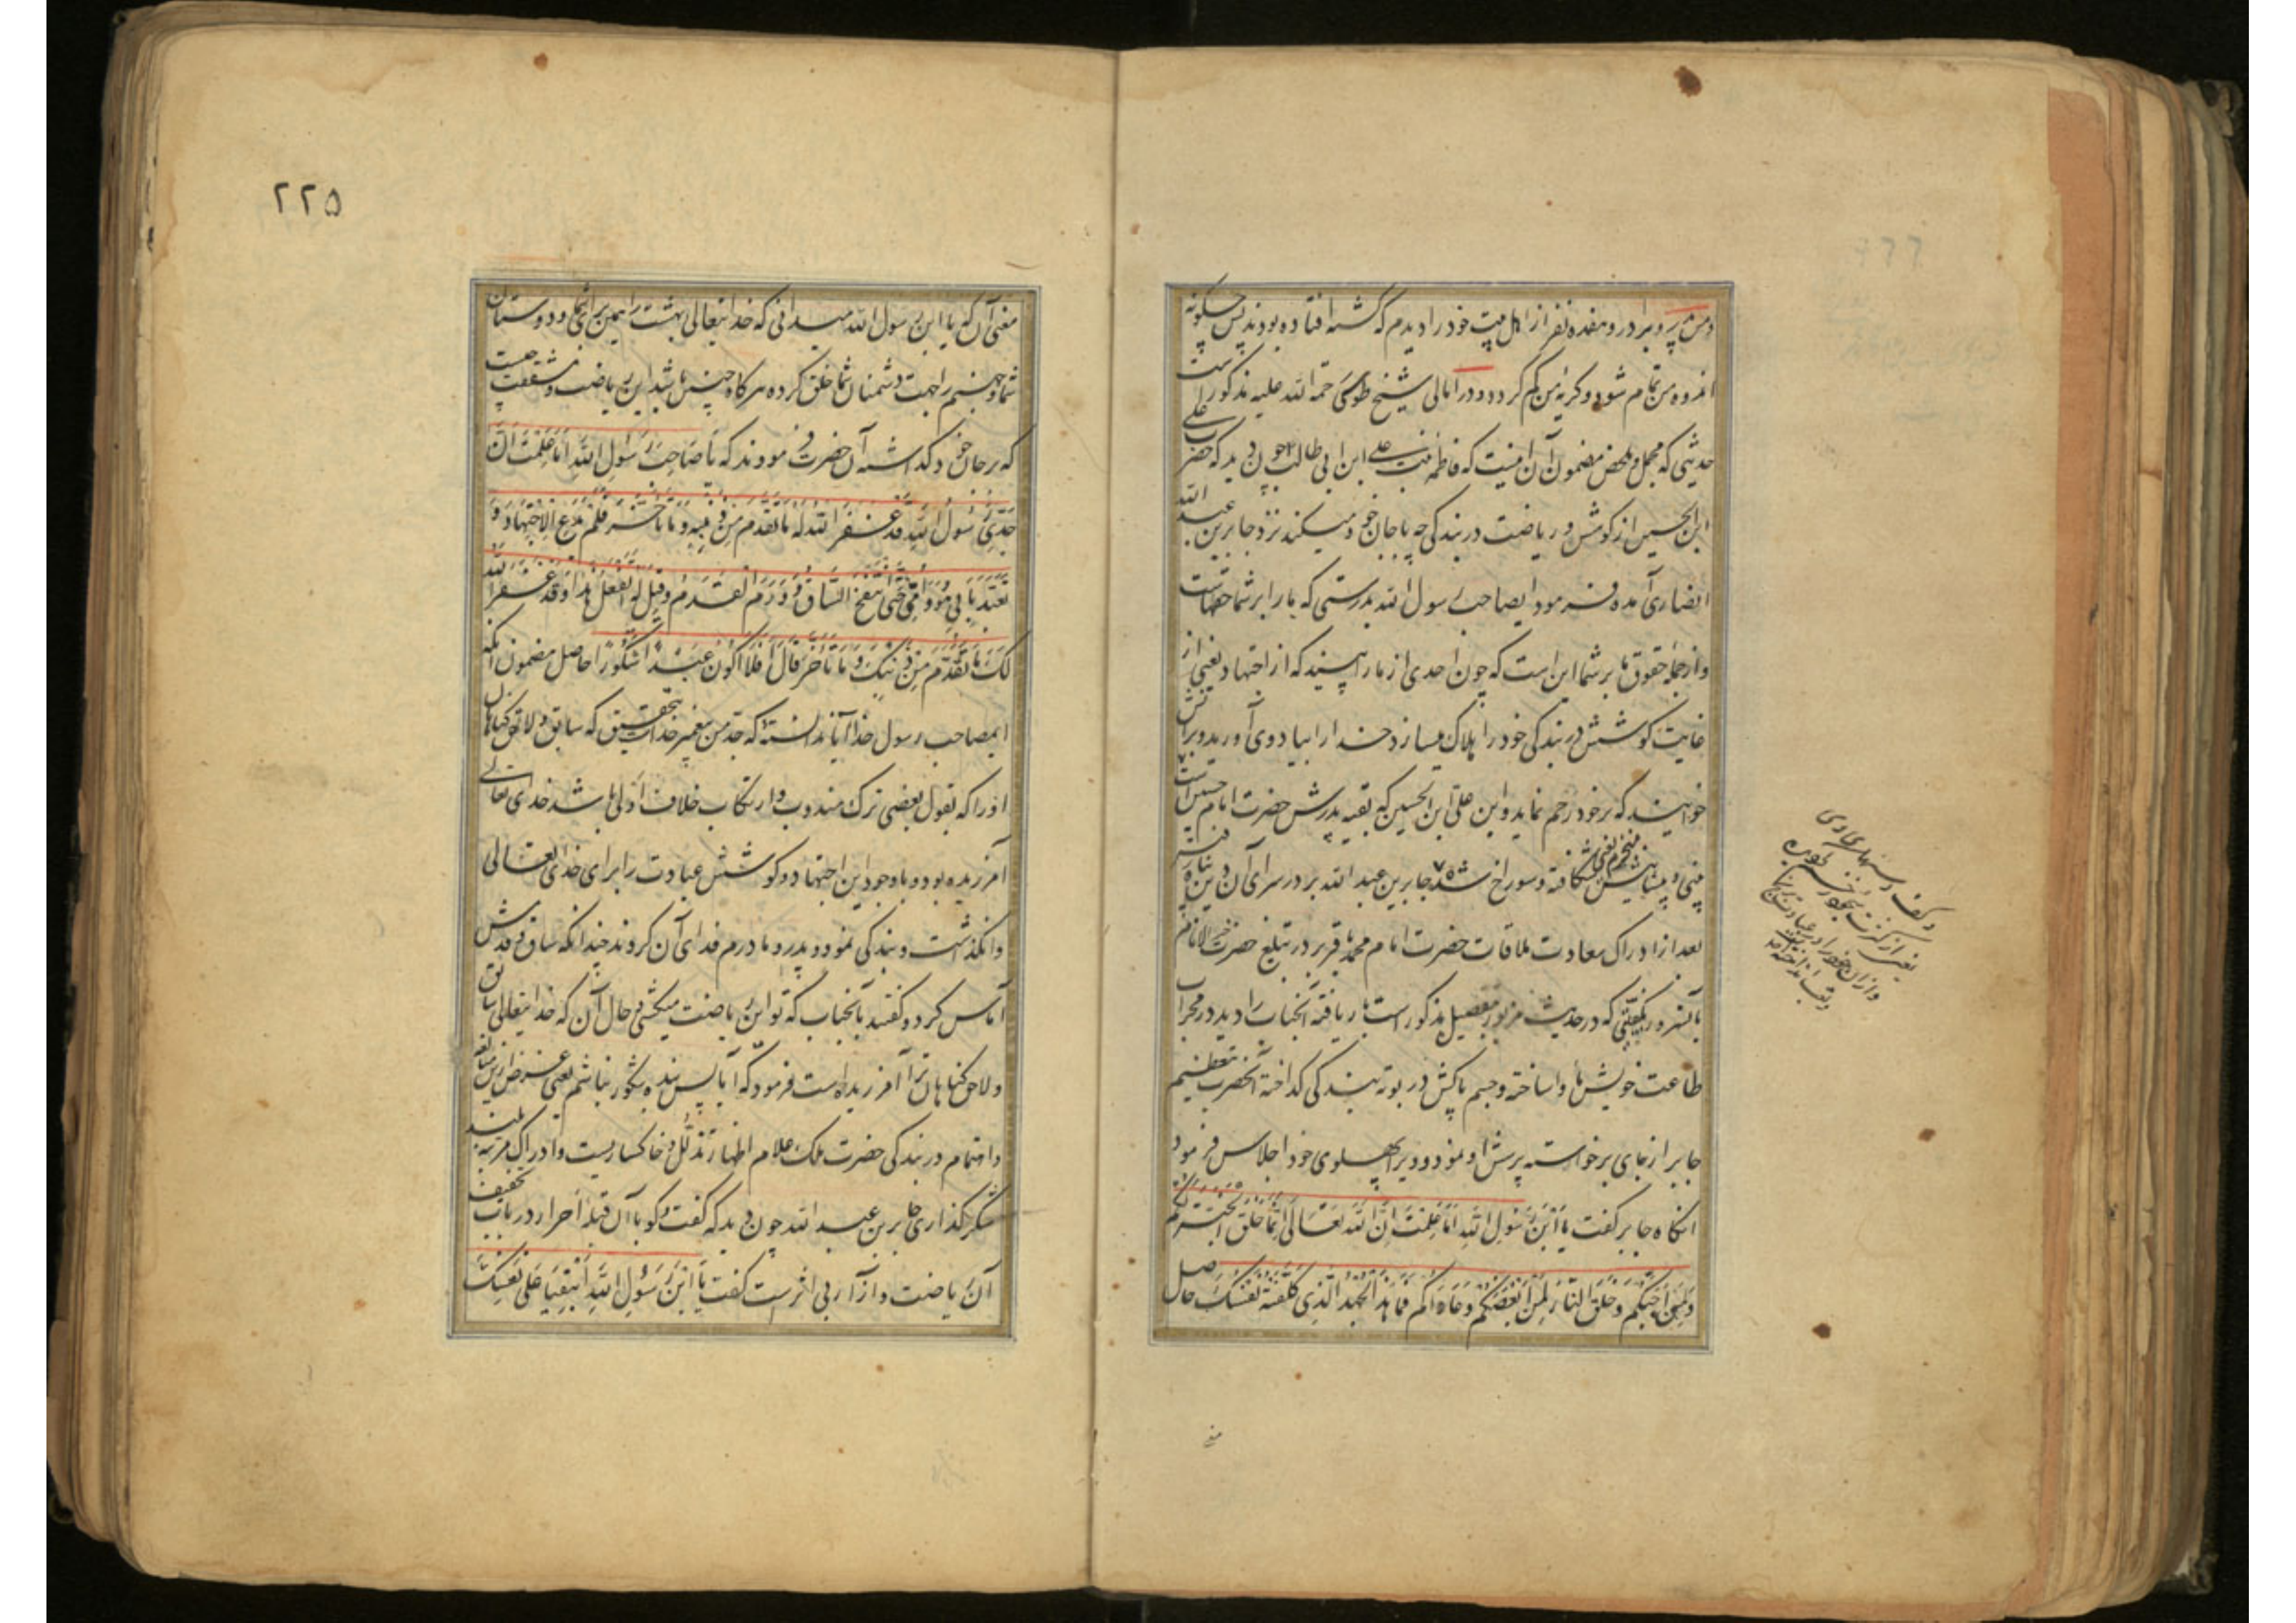 و من پدر و برادر و هفده نفر از اهل بیت خود را دیدم که کشته افتاده بودند پس چکونه
اندوه من تمام شود و کریهٔ من کم کردد و در امالی شیخ طوسی رحمة الله علیه مذکور است
حدیثی که مجمل و ملخص مضمون آن اینست که فاطمه بنت علی ابن ابی طالب چون دید که حضرت علی
ابن الحسین از کوشش و ریاضت در بندکی چه با جان خود میکند نزد جابر بن عبد الله
انصاری آمده فرمود ایصاحب رسول الله بدرستی که ما را بر شما حقهاست
و از جمله حقوق ما بر شما این است که چون احدی از ما را ببینید که از اجتهاد یعنی از
غایت کوشش در بندکی خود را هلاک میسازد خدا را بیاد وی آورید و برای
خواهید که بر خود رحم نماید و این علی ابن الحسین که بقیه پدرش حضرت امام حسین است
بینی و پیشانیش منخرم یعنی شکافته و سوراخ شده جابر بن عبد الله بر در سرای آن دین پناه
بعد از ادراک سعادت ملاقات حضرت امام محمد باقر در تبلیغ حضرت خیر الانام
بآنسرور که در حدیث مزبور بتفصیل مذکور است بار یافته آنجناب را دید در محراب
طاعت خویش و جسم پاکش در بوته بندکی کداخته آنحضرت بتعظیم
جابر از جای برخواسته پرسش او نمود و ویرا بپهلوی خود اجلاس فرمود
انکاه جابر کفت یَا ابْنَ رَسُولِ اللهِ اَمَا عَلِمْتَ اِنَّ اللهَ تَعَالَی اِنَّمَا خَلَقَ الْجَنَّةَ لَکُمْ
وَ لِمَنْ اَحَبَّکُمْ وَ خَلَقَ النَّارَ لِمَنْ اَبْغَضَکُمْ وَ عَادَاکُمْ فَمَا هَذَا الْجَهْدُ الَّذِی کَلَّفْتَهُ نَفْسَکَ حاصل
۲۲۵
معنی آن که یا ابن رسول الله میدانی که خدایتعالی بهشت را همین برای شما و دوستان
شما و جهنم را بجهت دشمنان شما خلق کرده هرکاه چنین باشد این ریاضت و مشقت چیست
که بر جان خود کذاشته آن حضرت فرمودند که یَا صَاحِبَ رَسُولِ اللهِ اَمَا عَلِمْتَ اَنَّ
جَدِّی رَسُولَ اللهِ قَدْ غَفَرَ اللهُ لَهُ مَا تَقَدَّمَ مِنْ ذَنْبِهِ وَ مَا تَاَخَّرَ فَلَمْ یَدَعِ الاِجْتِهَادَ وَ
تَعَبَّدَ بِاَبِی هُوَ وَ اُمِّی حَتَّی انْتَفَخَ السَّاقُ وَ وَرِمَ الْقَدَمُ وَ قِیلَ لَهُ اَتَفْعَلُ هَذَا وَ قَدْ غَفَرَ اللهُ
لَکَ مَا تَقَدَّمَ مِنْ ذَنْبِکَ وَ مَا تَاَخَّرَ قَالَ اَفَلَا اَکُونُ عَبْدًا شَکُورًا حاصل مضمون آنکه
ایمصاحب رسول خدا آیا ندانسته که جد من پیغمبر خداست بتحقیق که سابق و لاحق کناهان
او را که بقول بعضی ترک مندوب و ارتکاب خلاف اولی باشد خدای تعالی
آمرزیده بود و با وجود این اجتهاد و کوشش عبادت را برای خدای تعالی
وانکذاشت و بندکی نمود و پدر و مادرم فدای آن کروند چندانکه ساق و قدمش
آماس کرد و کفتند بآنجناب که تو این ریاضت میکشی و حال آن که خدایتعالی سابق
و لاحق کناهان ترا آمرزیده است فرمود که آیا پس بنده شکور نباشم یعنی غرض ازین مبالغه
و اهتمام در بندکی حضرت ملک علام اظهار تذلل و خاکساریست و ادراک مرتبه بلند
شکرکذاری جابر بن عبد الله چون دید که کفت و کو با آن قبلهٔ احرار در باب تخفیف
آن ریاضت و آزار بی اثرست کفت یَا ابْنَ رَسُولِ اللهِ اَلْبُقْیَا عَلَی نَفْسِکَ